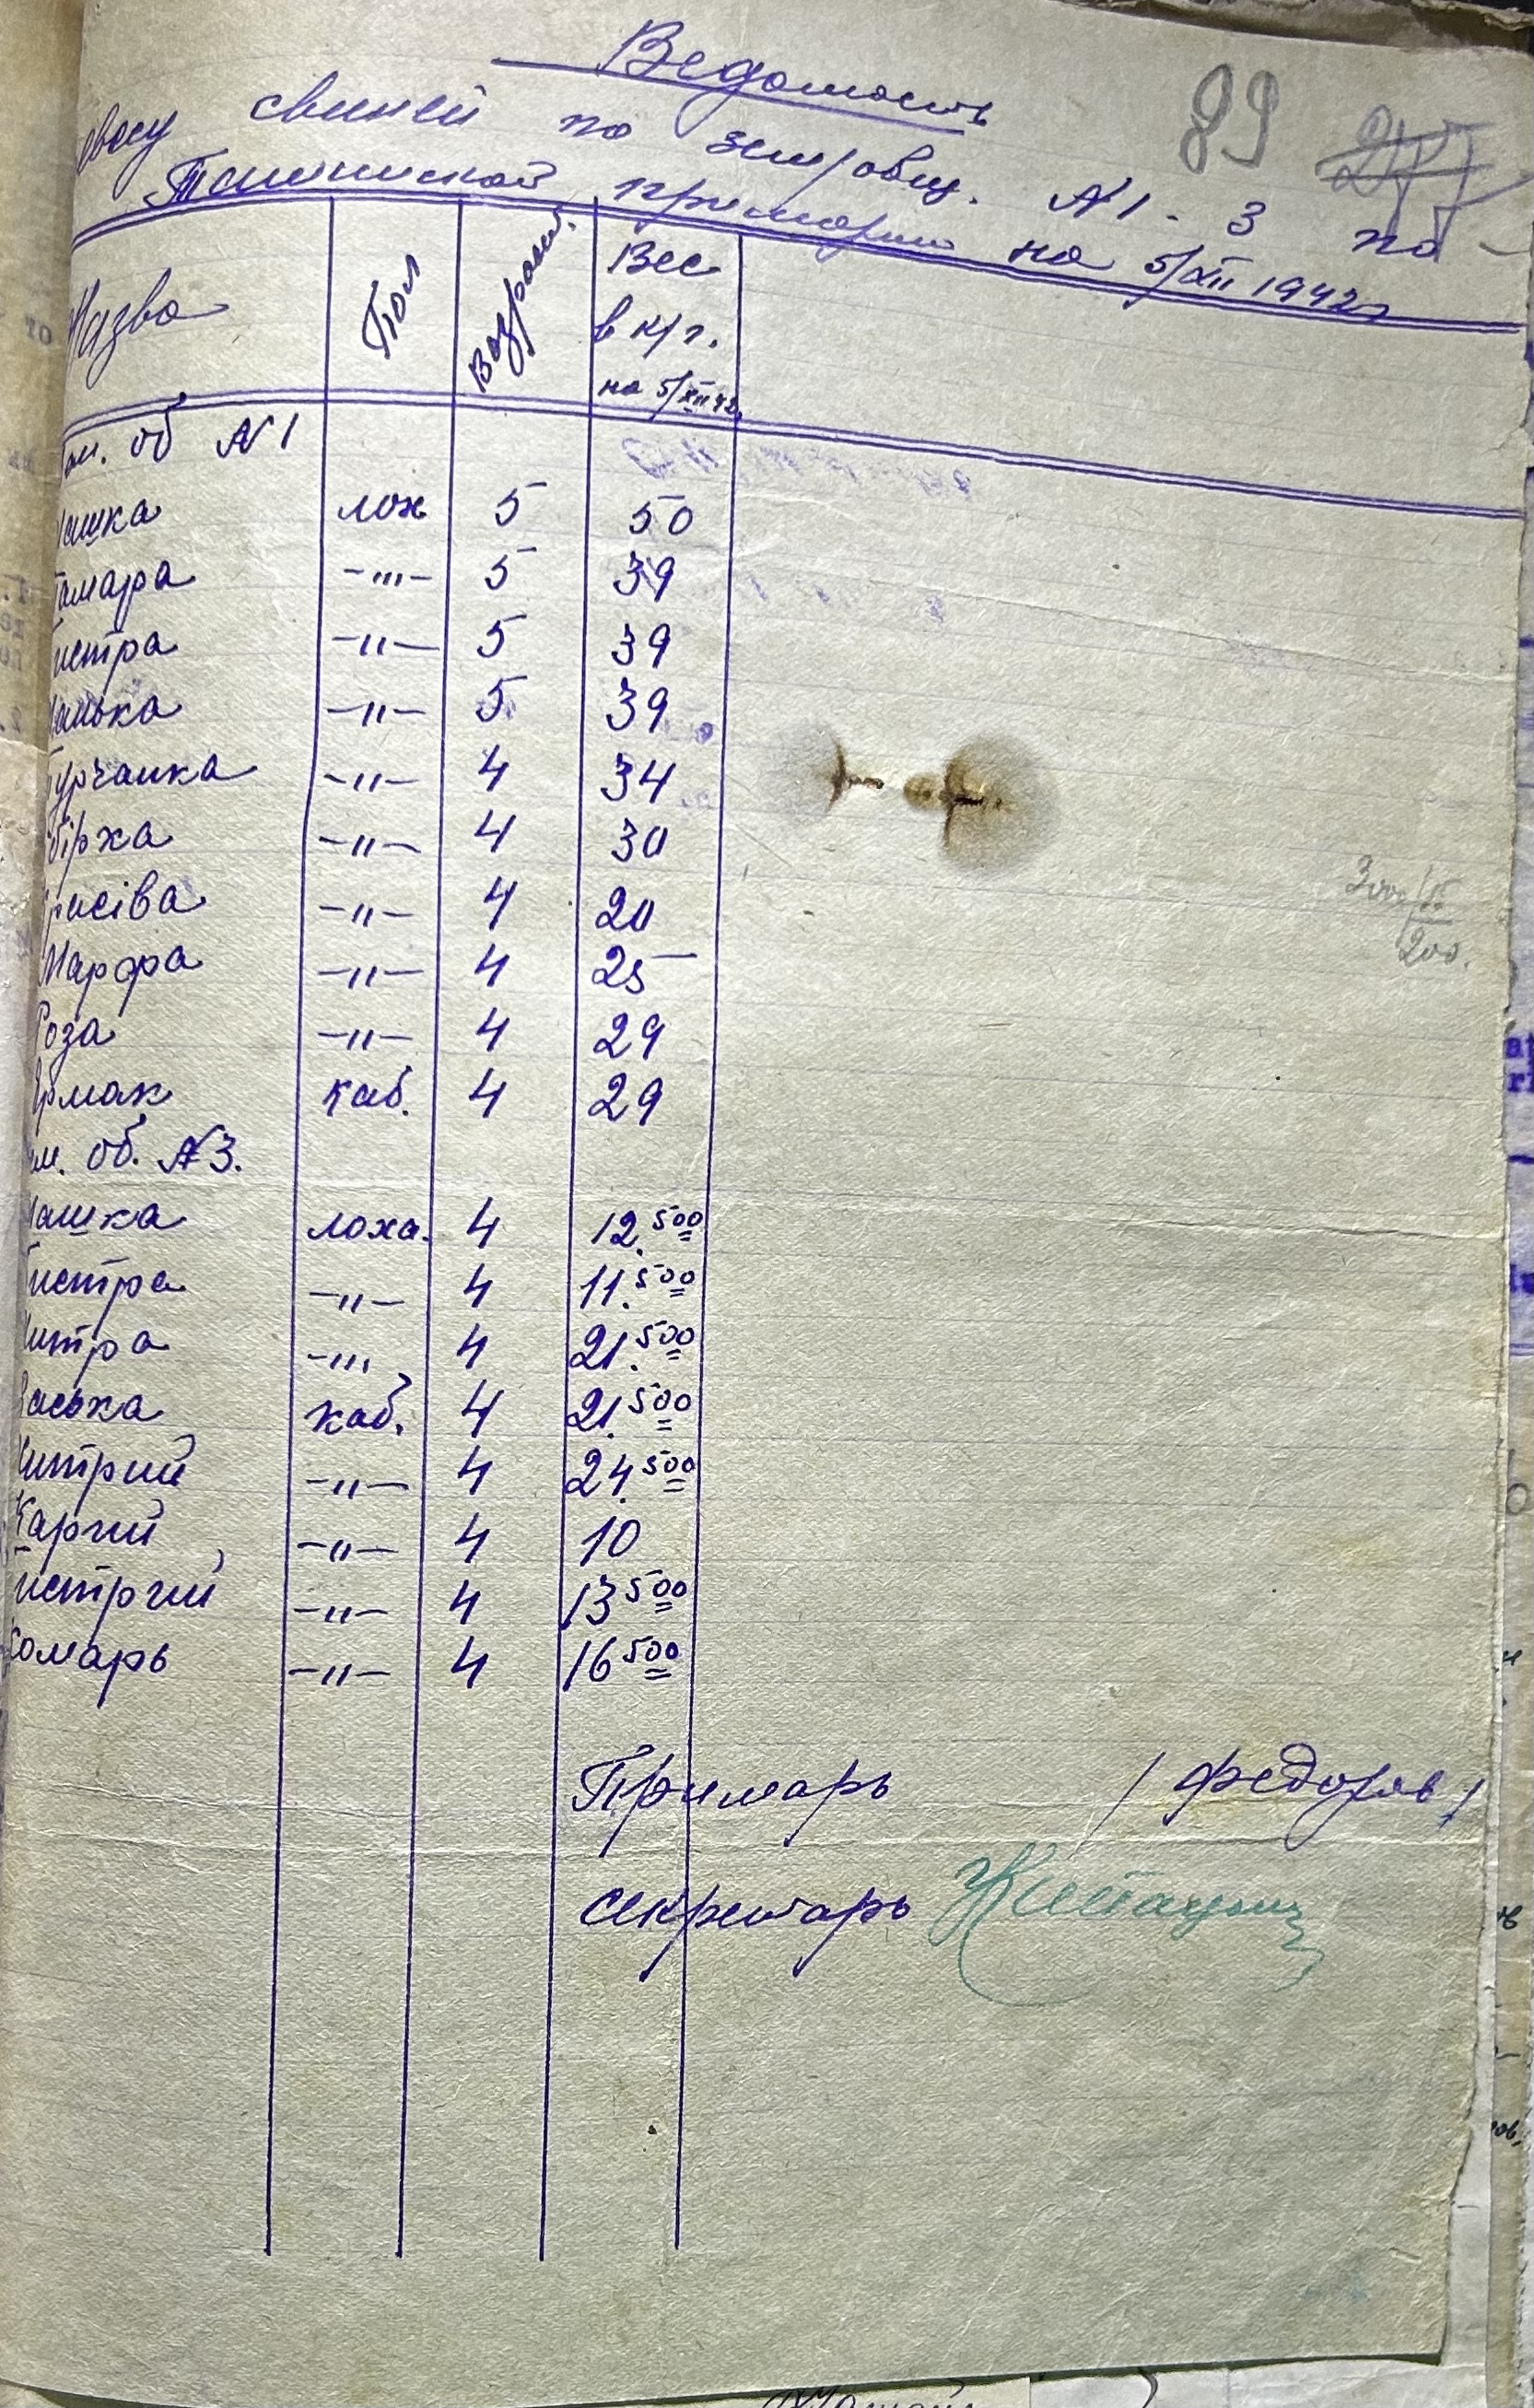 Ведомость
89
свиней по земробщ. №1-3 по
примарии на 5/XII 1942г
Назва Пол Возраст. Вес в к/г. на 5/XII 42.
об №1
Машка лох 5 50
Тамара -'''- 5 39
Пистра -"- 5 39
-"- 5 39
Турчанка -"- 4 34
-"- 4 30
Красіва -"- 4 20
Марфа -"- 4 25
Роза -"- 4 29
Ярмак каб. 4 29
об. №3.
Машка лоха. 4 12.500
Пистра -"- 4 11.500
Хитра -''' 4 21.500
Васька каб. 4 21.500
Хитрий -"- 4 24.500
Карий -"- 4 10
Пистрий -"- 4 13 500
Комарь -"- 4 16 500
200.
Примарь / Федоров /
Секретарь